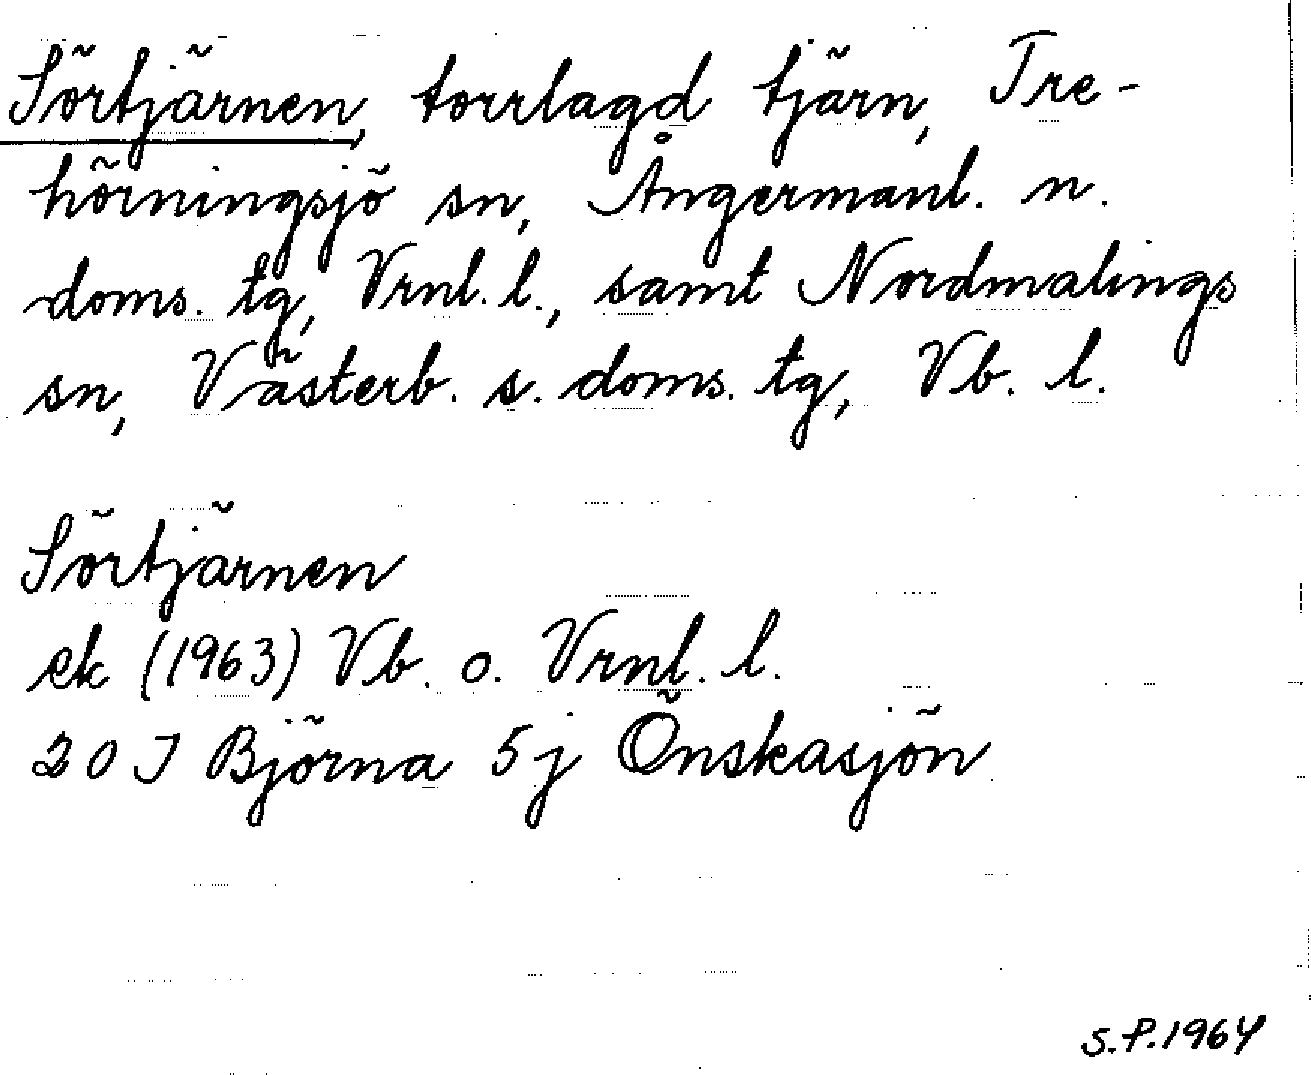 Sörtjärnen, torrlagd tjärn, Tre-
hörningsjö sn, Ångermanl. n.
doms. tg, Vrnl. l., samt Nordmalings
sn, Västerb. s. doms. tg, Vb. l.
Sörtjärnen
ek (1963) Vb. o. Vrnl. l.
20 J Björna 5j Önskasjön
S.P. 1964